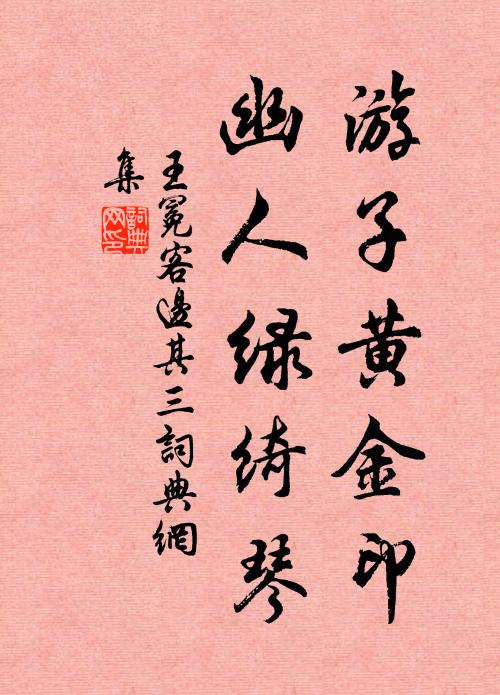 游子黄金印
幽人绿绮琴
王冕客邊其三詞典網
集
詞典
网印